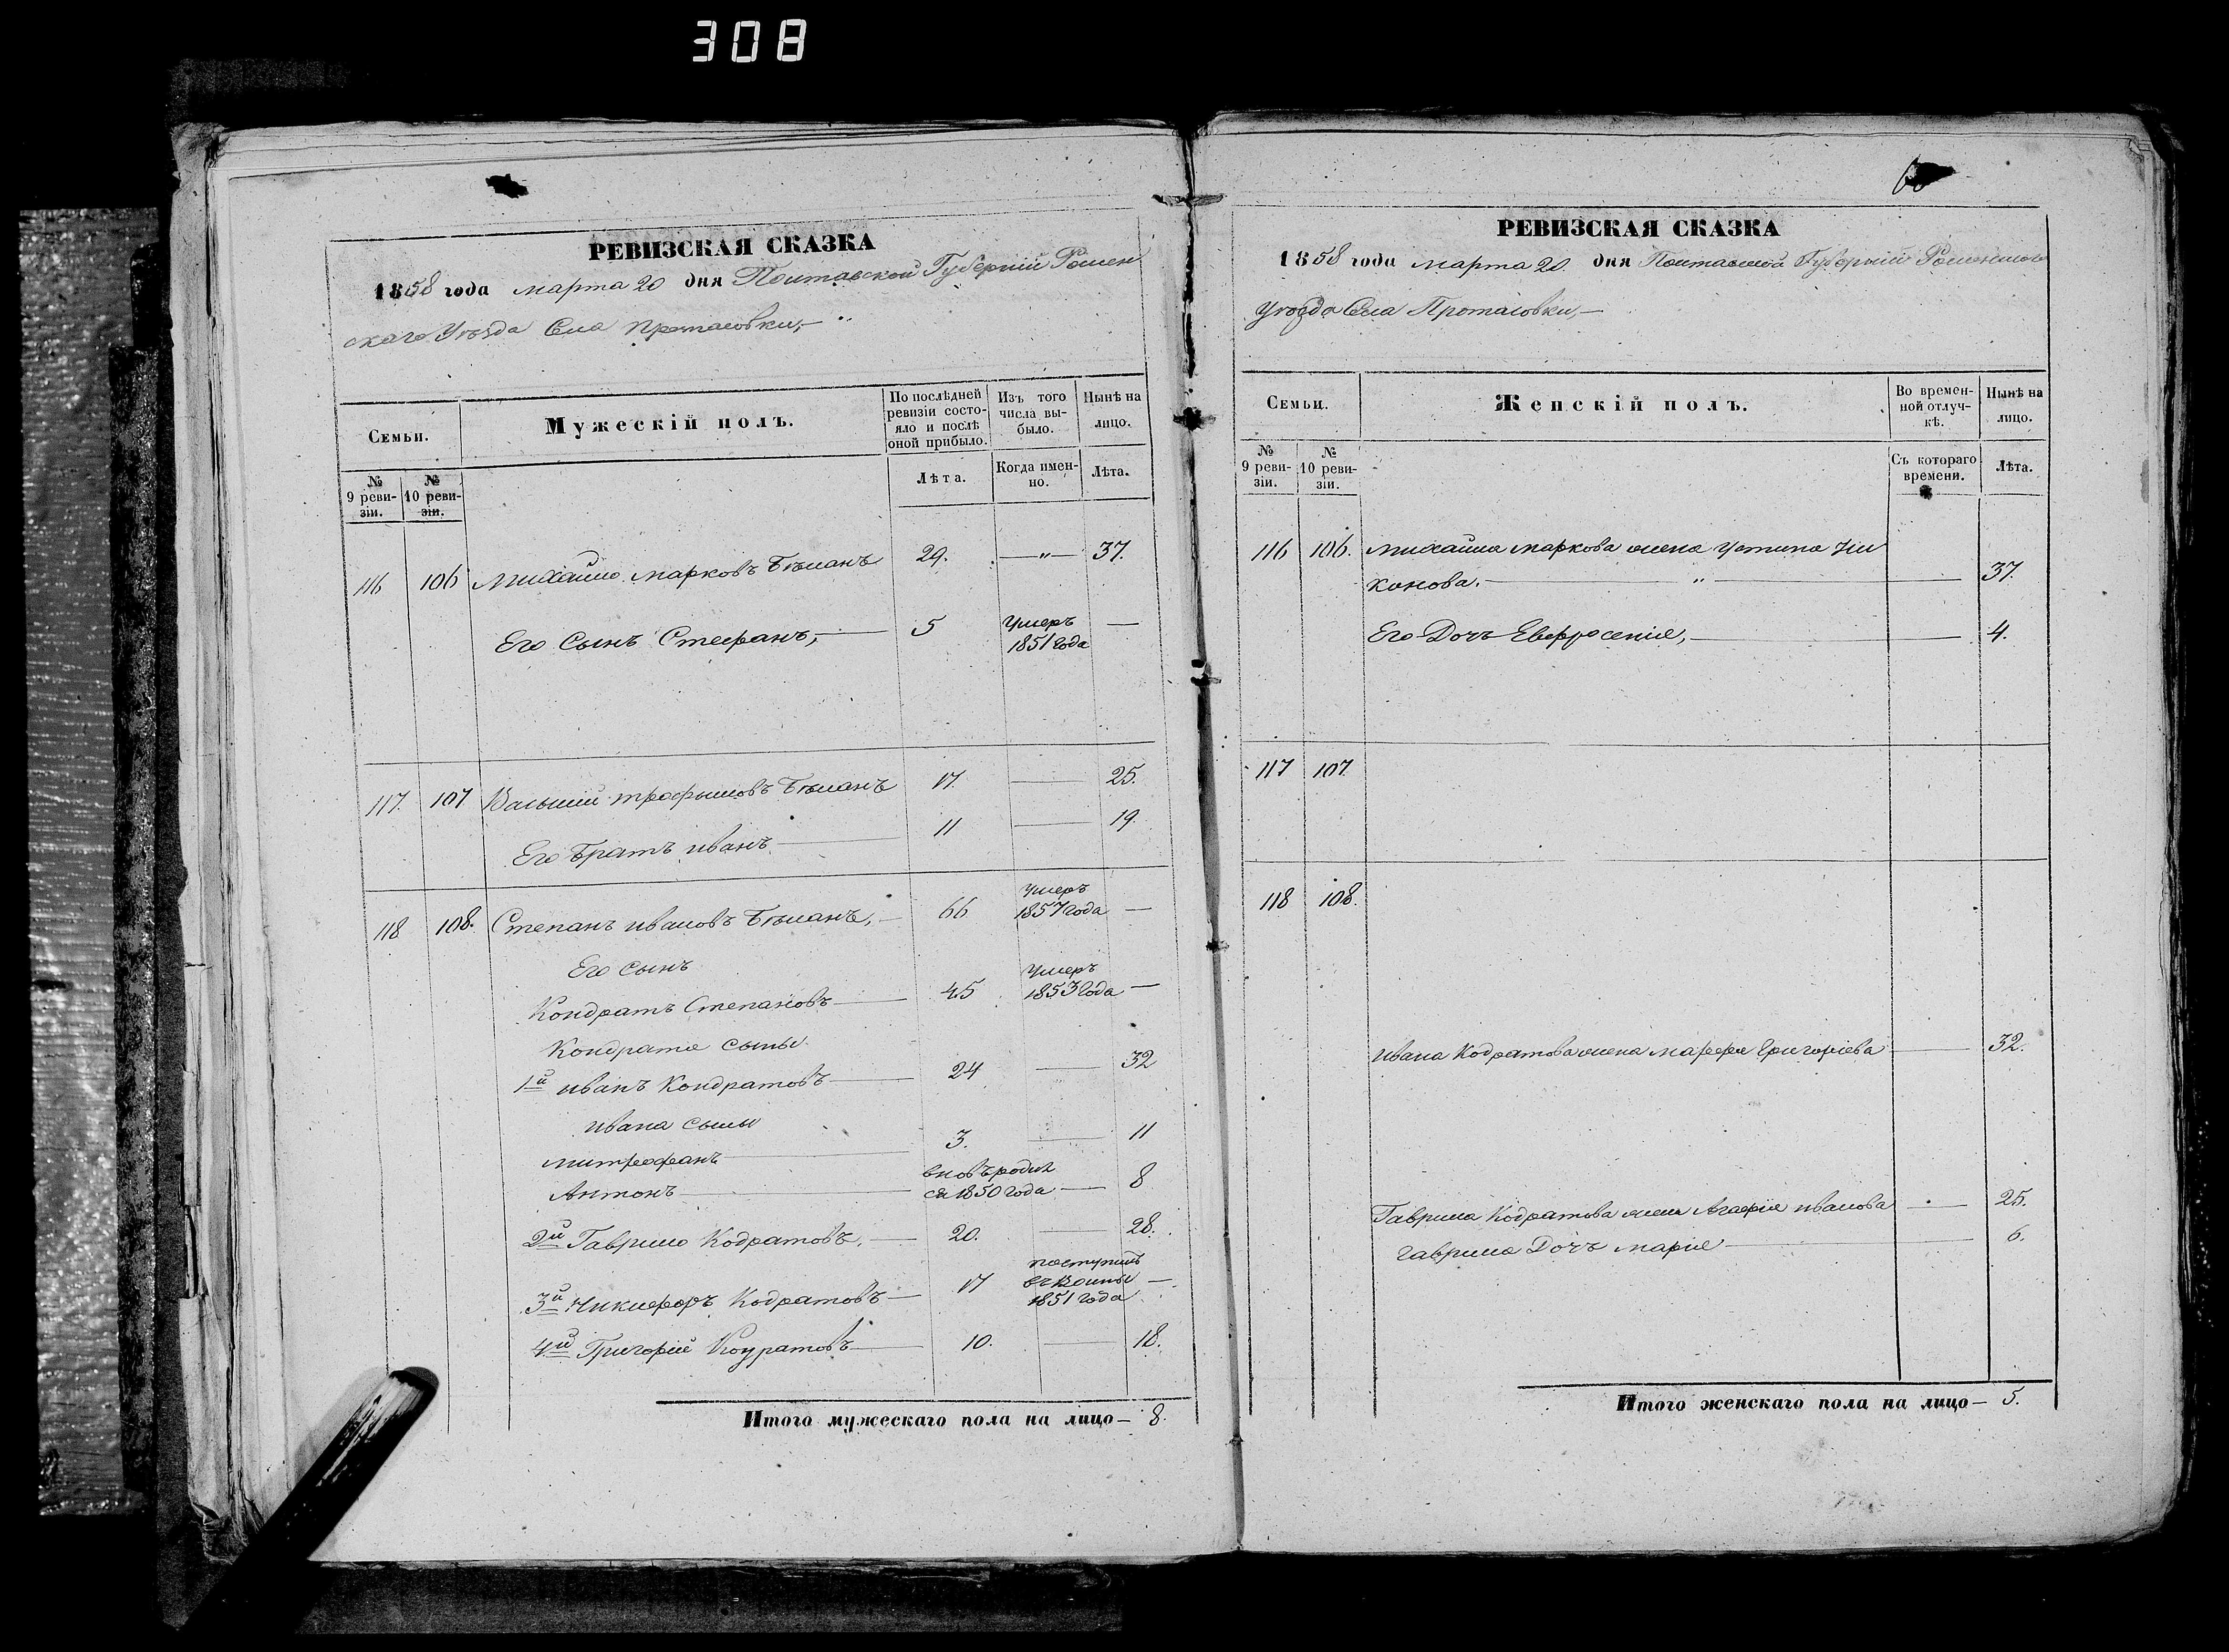 308
РЕВИЗСКАЯ СКАЗКА
1858 года марта 20 дня Полтавской Губернiи Ромен
скаго Уѣзда Села Протасовки,
Семьи.
Мужескiй полъ.
По послѣдней ревизiи состояло и послѣ оной прибыло.
Изъ того числа выбыло.
Нынѣ на лицо.
№ 9 ревизiи.
№ 10 ревизiи.
Лѣта.
Когда именно.
Лѣта.
116 106 Михайло Марковъ Бѣланъ 29. — „ — 37.
Его Сынъ Стефанъ, — 5 Умеръ 1851 года —
117. 107 Василiй трофимовъ Бѣланъ 17. — 25.
Его братъ иванъ — 11 — 19.
118 108. Степанъ ивановъ Бѣланъ, — 66 Умеръ 1857 года —
Его сынъ
Кондратъ Степановъ — 45 Умеръ 1853 года —
Кондрата сыны
1й иванъ Кондратовъ — 24 — 32
ивана сыны
митрофанъ — 3. — 11
Антонъ — вновь родил
ся 1850 года — 8
2й Гаврило Кодратовъ, — 20. — 28.
3й Никифоръ Кодратовъ — 17 поступилъ
1851 года —
4й Григорiй Кодратовъ — 10. — 18.
Итого мужескаго пола на лицо — 8.
РЕВИЗСКАЯ СКАЗКА
1858 года марта 20. дня Полтавской Губернiи Роменскаго
Уѣзда Села Протасовки, —
Семьи.
Женскiй полъ.
Во временной отлучкѣ.
Нынѣ на лицо.
№ 9 ревизiи.
№ 10 ревизiи.
Съ котораго времени.
Лѣта.
116 106. Михайла маркова жена Устина
конова. — „ — 37.
Его Дочь Евфросенiя, — 4.
117 107.
118 108.
ивана Кодратова жена марфа Григорiева — 32.
Гаврила Кодратова жена Агафiя иванова — 25.
гаврила Дочь марiя — 6.
Итого женскаго пола на лицо — 5.